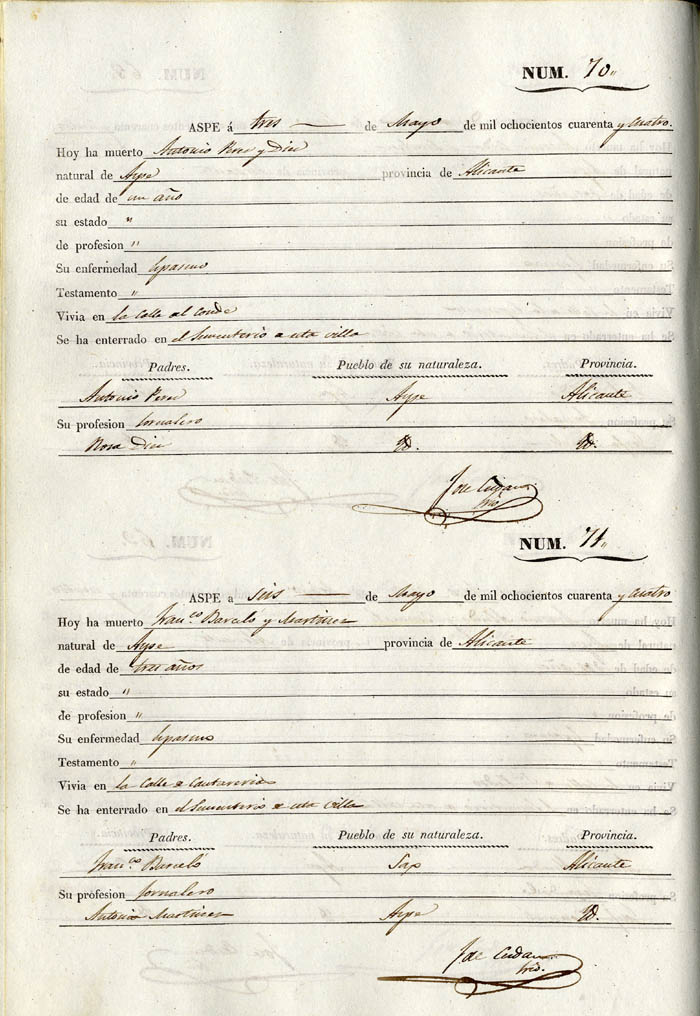 NUM. 70"
ASPE á tres — de Mayo de mil ochocientos cuarenta y Cuatro.
Hoy ha muerto Antonio Perez y Diez
natural de Aspe provincia de Alicante
de edad de un año
su estado "
de profesion "
Su enfermedad Espasmo
Testamento "
Vivia en la Calle del Conde
Se ha enterrado en el Sementerio de esta villa
Padres. Pueblo de su naturaleza. Provincia.
Antonio Perez Aspe Alicante
Su profesion Jornalero
Rosa Diez Yd. Yd.
NUM. 71"
ASPE a seis — de Mayo de mil ochocientos cuarenta y Cuatro
Hoy ha muerto Franco. Barcelo y Martinez
natural de Aspe provincia de Alicante
de edad de tres años
su estado "
de profesion "
Su enfermedad Espasmo
Testamento "
Vivia en la Calle de
Se ha enterrado en el Sementerio de esta villa
Padres. Pueblo de su naturaleza. Provincia.
Franco. Barceló Sax Alicante
Su profesion Jornalero
Antonia Martinez Aspe Yd.